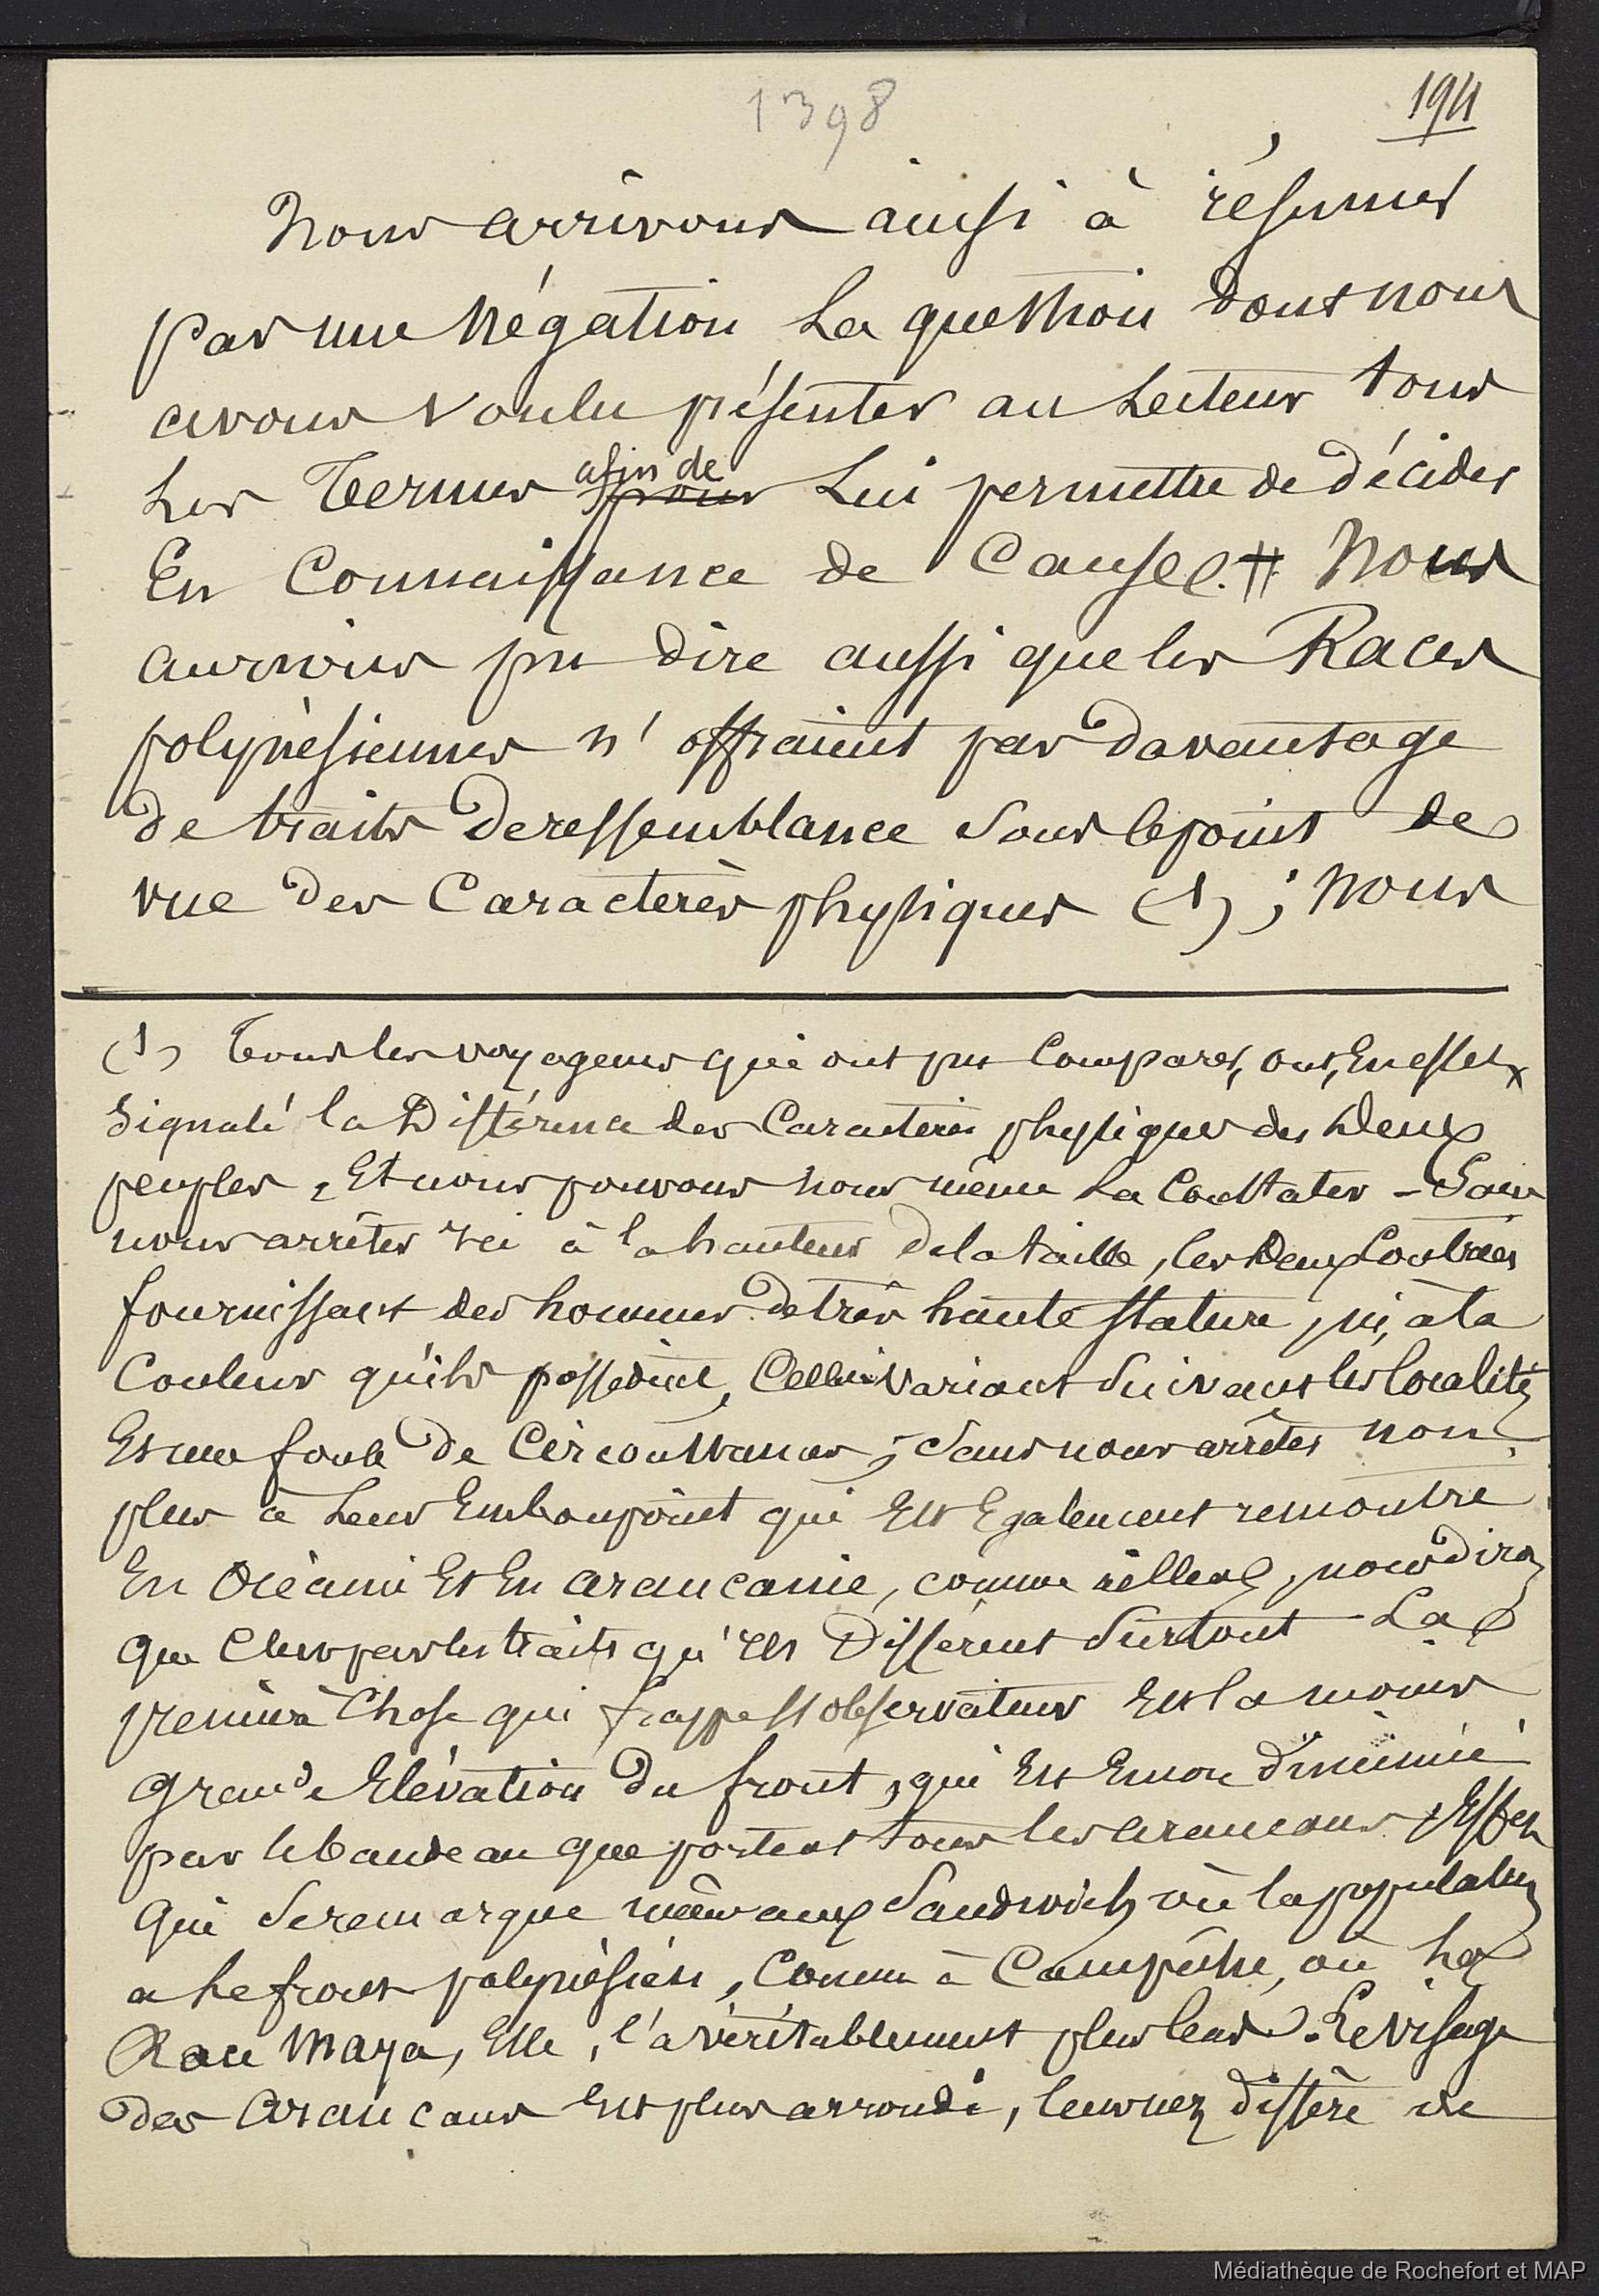 1398
194
Nous arrivons ainsi à résumer
par une négation la question dont nous
avons voulu présenter au lecteur tous
les termes afin de pour lui permettre de décider
En Connaissance de Cause. # Nous
aurions pu dire aussi que les Races
polynésiennes n'offraient pas davantage
de traits de ressemblance sous le point de
vue des Caractères physiques (1) ; nous
(1) Tous les voyageurs qui ont pu Comparer, ont, En effet x
Signalé la Différence des Caractères physiques des Deux
peuples, Et nous pouvons nous même la Constater - Sans
nous arrêter ici à la hauteur de la taille, les Deux Contrées
fournissant des hommes de très haute stature, ni, à la
Couleur qu'ils possèdent, Celle-ci variant Suivant les localités
Et une foule de Circonstances ; Sans nous arrêter non
plus à leur Embonpoint qui Est Egalement rencontré
En Océanie Et En araucanie, comme ailleurs, nous dirons
que C'est par les traits qu'ils Différent Surtout - La
première Chose qui frappe l'observateur Est la moins
grande Elévation du front, qui Est Encore diminuée
par le bandeau que portent tous les araucans, Effet
qui Se remarque même aux Sandwich où la population
a le front polynésien, Comme à Campêche, où la
Race Maya, Elle, l'a véritablement plus bas. Le visage
des Araucans Est plus arrondi, leur nez diffère de
Médiathèque de Rochefort et MAP